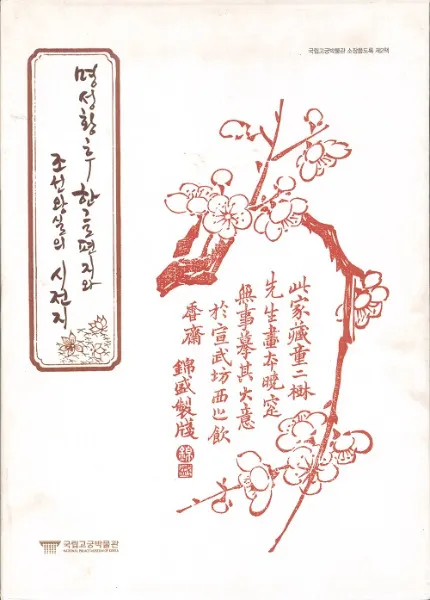 국립고궁박물관 소장품도록 제2책
명성황후 한글편지와
조선왕실의 시전지
此家藏童二樹
先生畫本曉窓
無事摹其大意
於宣武坊西之飮
麐齋 錦盛製牋
국립고궁박물관
NATIONAL PALACE MUSEUM OF KOREA